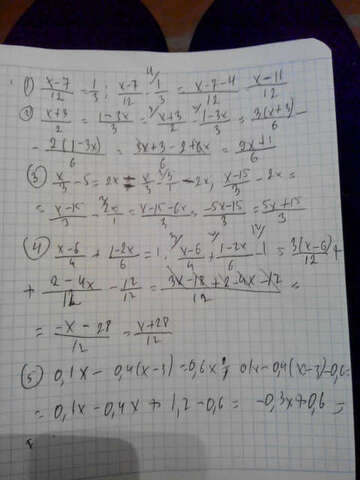 1) (x-7)/12 = 1/3; (x-7)/12 - 1/3 = (x-7-4)/12 (x-11)/12
2) (x+3)/2 = (1-3x)/3 = (x+3)/2 - (1-3x)/3 = 3(x+3)/6 -
- 2(1-3x)/6 = (3x+3-2+6x)/6 = (9x+1)/6
3) x/3 - 5 = 2x = x/3 - 5/1 - 2x, (x-15)/3 - 2x =
= (x-15)/3 - 2x/1 = (x-15-6x)/3 = (-5x-15)/3 = (5x+15)/3
4) (x-6)/4 + (1-2x)/6 = 1, (x-6)/4 + (1-2x)/6 - 1 = 3(x-6)/12 +
+ (2-4x)/12 - 12/12 = (3x-18+2-4x-12)/12 =
= (-x-28)/12 = (x+28)/12
5) 0,1x - 0,4(x-3) = 0,6x; 01x-0,4(x-3)-0,6=
= 0,1x-0,4x + 1,2-0,6 = -0,3x+0,6 =